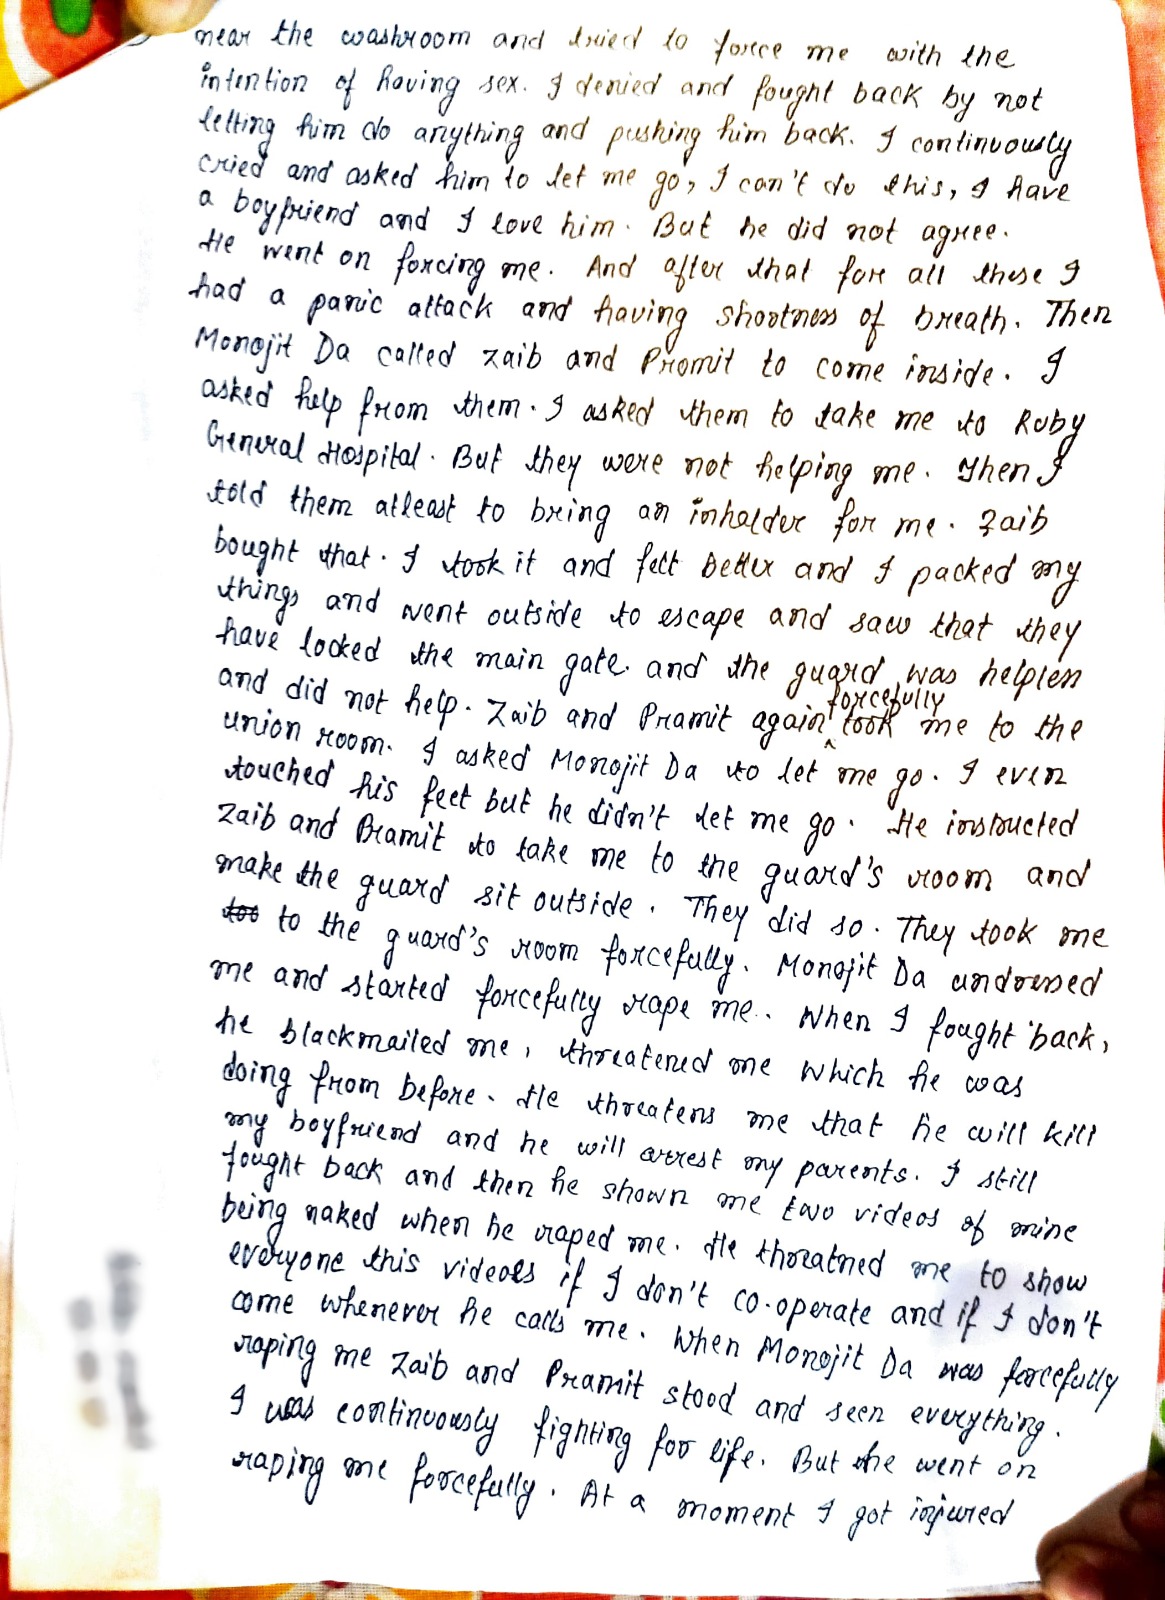 near the washroom and tried to force me with the
intention of having sex. I denied and fought back by not
letting him do anything and pushing him back. I continuously
cried and asked him to let me go, I can't do this, I have
a boyfriend and I love him. But he did not agree.
He went on forcing me. And after that for all these I
had a panic attack and having shootness of breath. Then
Monojit Da called Zaib and Promit to come inside. I
asked help from them. I asked them to take me to Ruby
General Hospital. But they were not helping me. Then I
told them atleast to bring an inhalder for me. Zaib
bought that. I took it and felt better and I packed my
things and went outside to escape and saw that they
have locked the main gate and the guard was helpless
and did not help. Zaib and Pramit again forcefully took me to the
union room. I asked Monojit Da to let me go. I even
touched his feet but he didn't let me go. He instructed
Zaib and Pramit to take me to the guard's room and
make the guard sit outside. They did so. They took me
to the guard's room forcefully. Monojit Da undressed
me and started forcefully rape me. When I fought back,
he blackmailed me, threatened me which he was
doing from before. He threatens me that he will kill
my boyfriend and he will arrest my parents. I still
fought back and then he shown me two videos of mine
being naked when he raped me. He threatned me to show
everyone this videoes if I don't co-operate and if I don't
come whenever he calls me. When Monojit Da was forcefully
raping me Zaib and Pramit stood and seen everything.
I was continuously fighting for life. But he went on
raping me forcefully. At a moment I got injured